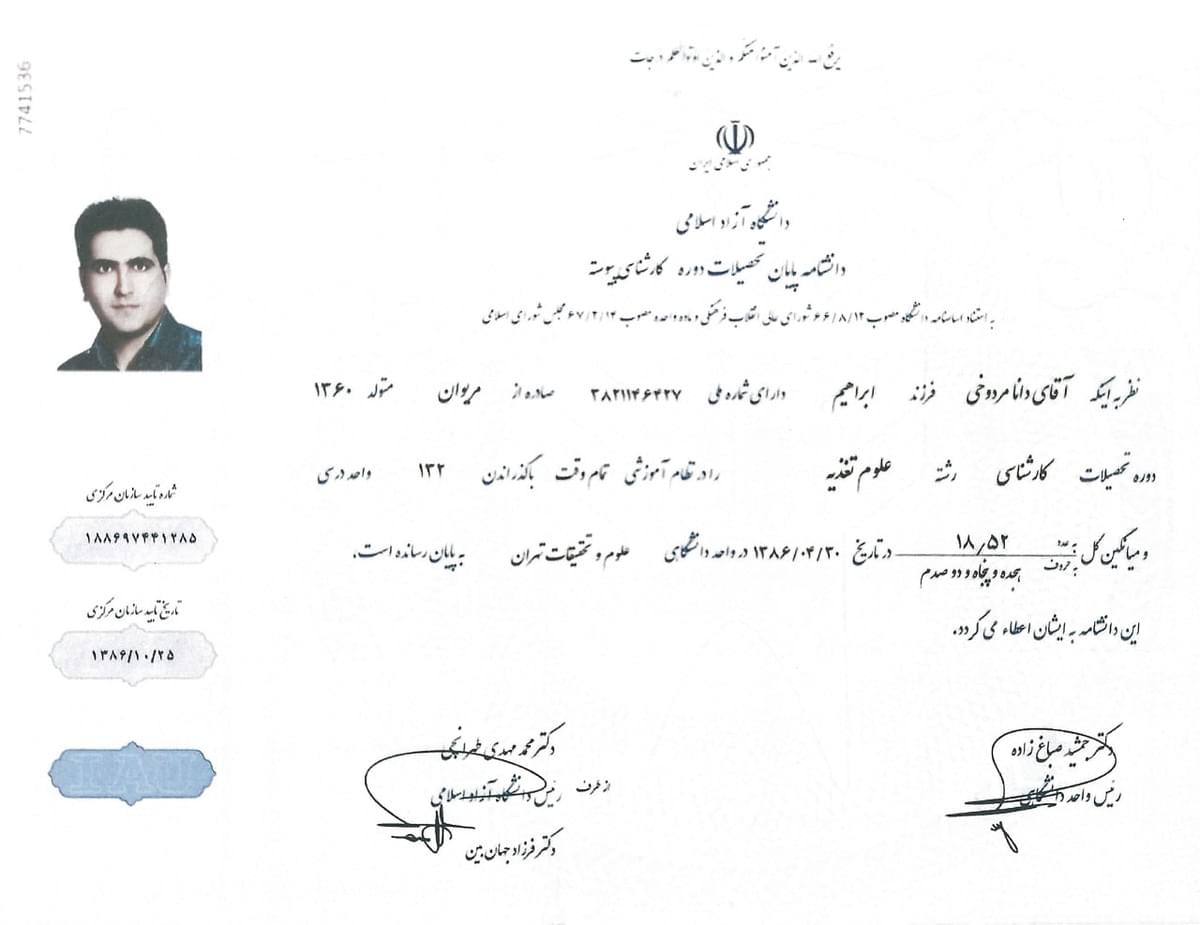 یرفع الله الذین آمنوا منکم و الذین اوتوا العلم درجات
جمهوری اسلامی ایران
دانشگاه آزاد اسلامی
دانشنامه پایان تحصیلات دوره کارشناسی پیوسته
به استناد اساسنامه دانشگاه مصوب ۶۶/۸/۱۲ شورای عالی انقلاب فرهنگی و ماده واحده مصوب ۶۷/۲/۱۴ مجلس شورای اسلامی
نظر به اینکه آقای دانا مردوخی فرزند ابراهیم دارای شماره ملی ۳۸۲۱۱۴۶۴۲۷ صادره از مریوان متولد ۱۳۶۰
دوره تحصیلات کارشناسی رشته علوم تغذیه را در نظام آموزشی تمام وقت با گذراندن ۱۳۲ واحد درسی
و میانگین کل به عدد ۱۸٫۵۲ به حروف هجده و پنجاه و دو صدم در تاریخ ۱۳۸۶/۰۴/۳۰ در واحد دانشگاهی علوم و تحقیقات تهران به پایان رسانده است.
این دانشنامه به ایشان اعطاء می گردد.
دکتر جمشید صباغ زاده
رئیس واحد دانشگاهی
دکتر محمد مهدی طهرانچی
رئیس دانشگاه آزاد اسلامی
از طرف
دکتر فرزاد جهان بین
7741536
شماره تایید سازمان مرکزی
۱۸۸۶۹۷۴۴۱۲۸۵
تاریخ تایید سازمان مرکزی
۱۳۸۶/۱۰/۲۵
IAU